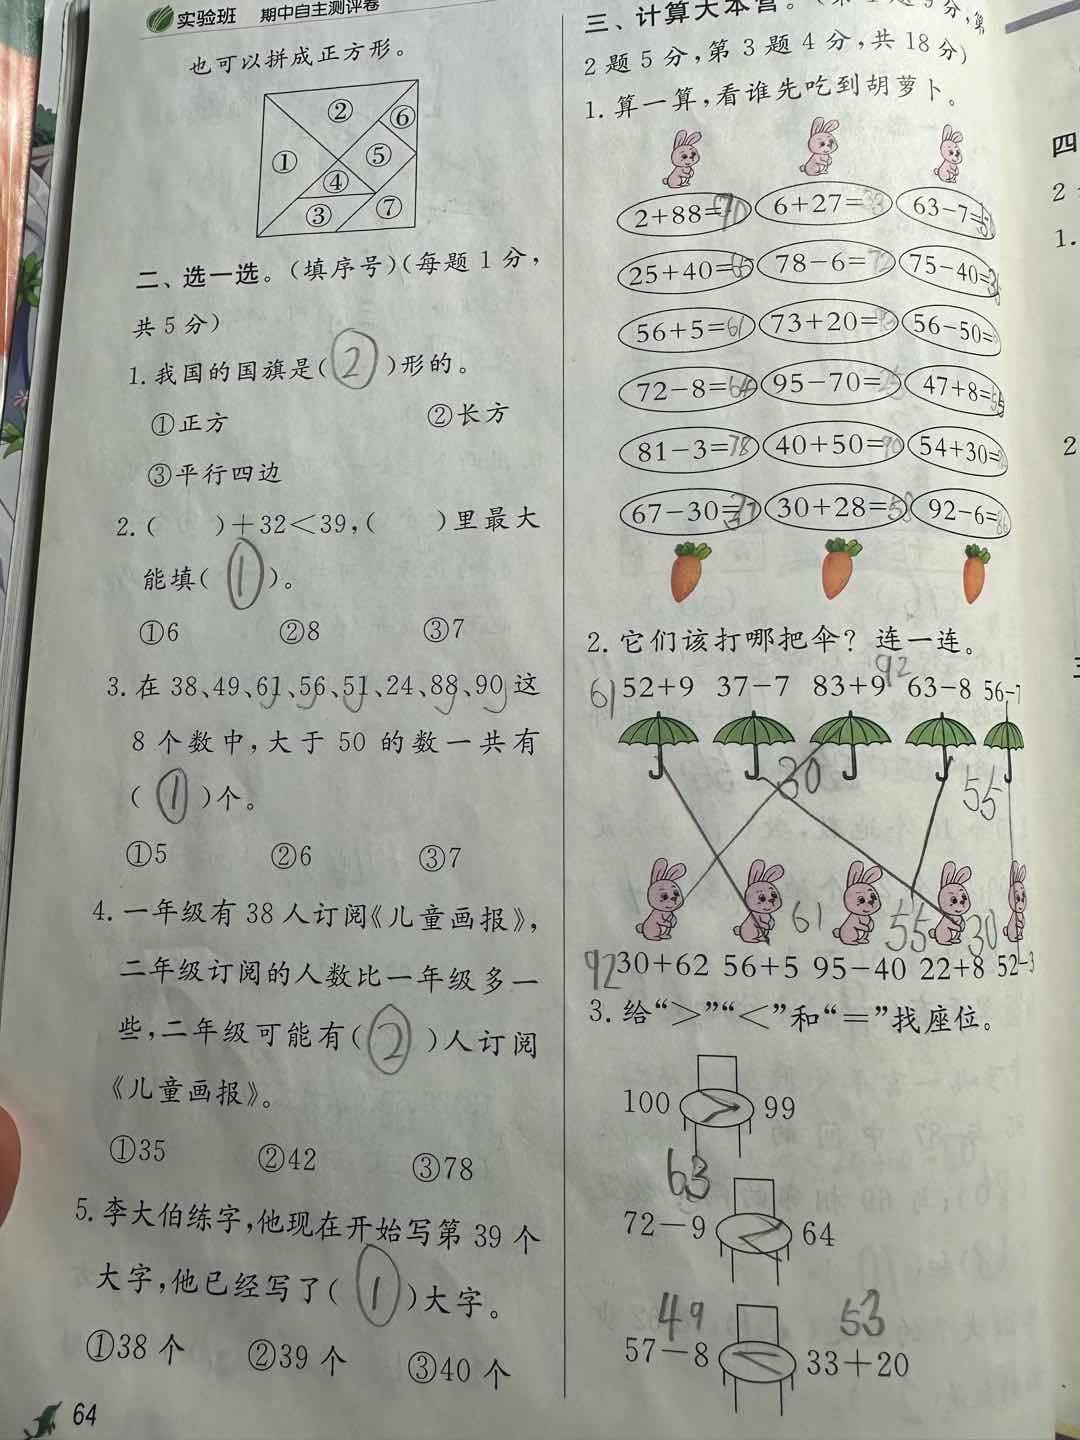 实验班 期中自主测评卷
也可以拼成正方形。
② ⑥
① ⑤
④
③ ⑦
二、选一选。(填序号)(每题1分,
共5分)
1.我国的国旗是( 2 )形的。
①正方 ②长方
③平行四边
2.( )+32<39,( )里最大
能填( 1 )。
①6 ②8 ③7
3.在38、49、61、56、51、24、88、90这
8个数中,大于50的数一共有
( 1 )个。
①5 ②6 ③7
4.一年级有38人订阅《儿童画报》,
二年级订阅的人数比一年级多一
些,二年级可能有( 2 )人订阅
《儿童画报》。
①35 ②42 ③78
5.李大伯练字,他现在开始写第39个
大字,他已经写了( 1 )大字。
①38个 ②39个 ③40个
64
三、计算大本营。
2题5分,第3题4分,共18分)
1.算一算,看谁先吃到胡萝卜。
2+88= 6+27=33 63-7=
25+40=65 78-6=72 75-40=
56+5=61 73+20= 56-50=
72-8=64 95-70=25 47+8=55
81-3=78 40+50=90 54+30=
67-30=37 30+28=58 92-6=86
2.它们该打哪把伞?连一连。
61 92
52+9 37-7 83+9 63-8 56-7
30 55
61 55 30
92 30+62 56+5 95-40 22+8 52-3
3.给“>”“<”和“=”找座位。
100 > 99
63
72-9 < 64
49 53
57-8 < 33+20
四
1.
2